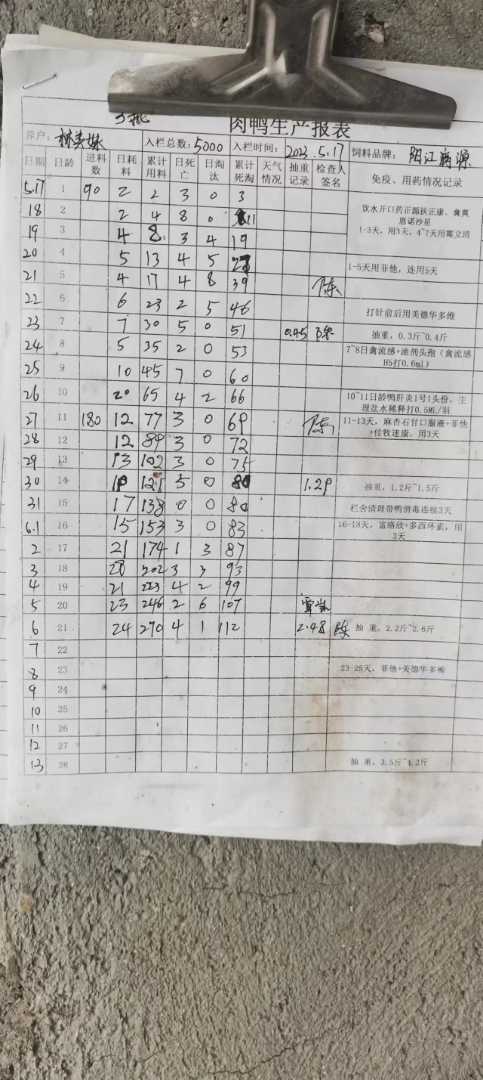 肉鸭生产报表
养户： 入栏总数：5000 入栏时间：2023.5.17 饲料品牌：阳江
日期 日龄 进料数 日耗料 累计用料 日死亡 日淘汰 累计死淘 天气情况 抽重记录 检查人签名 免疫、用药情况记录
5.17 1 90 2 2 3 0 3
18 2 2 4 8 0 11
19 3 4 8 3 4 19 1-3天，用3天，4~7天用霉立清
20 4 5 13 4 5
21 5 4 17 4 8 39 陈 1-5天用菲他，连用5天
22 6 6 23 2 5 46 打针前后用美德华多维
23 7 7 30 5 0 51 0.45 陈 抽重，0.3斤~0.4斤
24 8 5 35 2 0 53 7~8日禽流感+浆剂头孢（禽流感H5打0.6ml）
25 9 10 45 7 0 60
26 10 20 65 4 2 66 10~11日龄鸭肝炎1号1头份，生理盐水稀释打0.5ML/羽
27 11 180 12 77 3 0 69 陈 11-13天，麻杏石甘口服液+菲他
28 12 12 89 3 0 72 用3天
29 13 13 102 3 0 75
30 14 121 5 0 80 1.29 抽重，1.2斤~1.5斤
31 15 17 138 0 0 80 带鸭消毒连续3天
6.1 16 15 153 3 0 83 16-18天，+多西环素，用3天
2 17 21 174 1 3 87
3 18 28 202 3 3 93
4 19 21 223 4 2 99
5 20 23 246 2 6 107
6 21 24 270 4 1 112 2.48 陈 抽重，2.2斤~2.6斤
7 22
8 23 23-25天，菲他+美德华多维
9 24
10 25
11 26
12 27
13 28 抽重，3.5斤~4.2斤